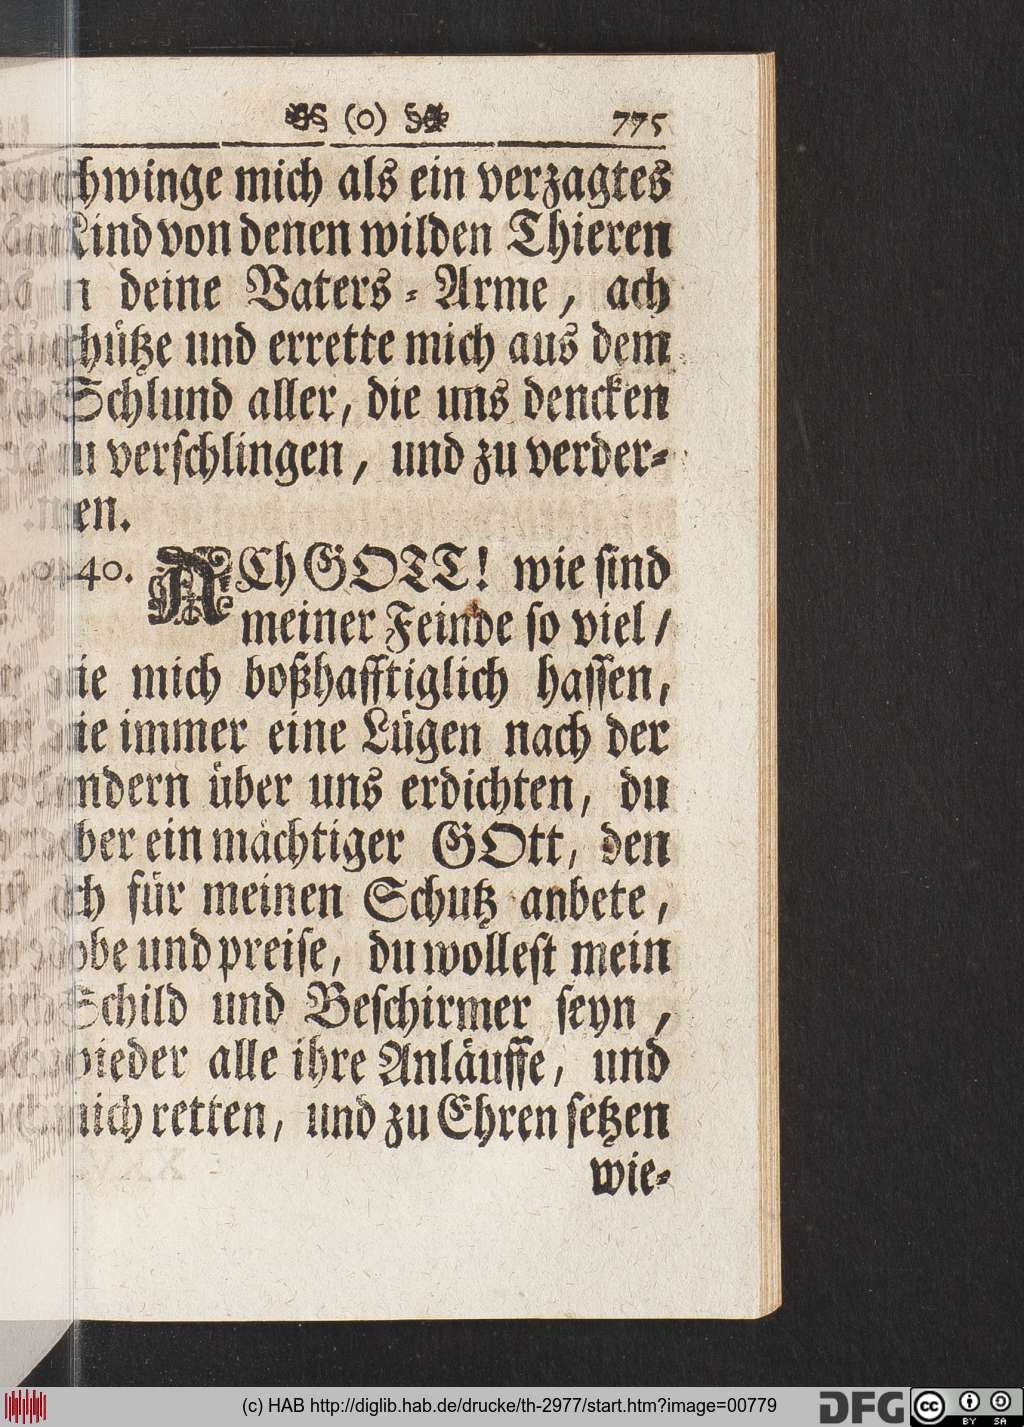 (0) 775
schwinge mich als ein verzagtes
Kind von denen wilden Thieren
in deine Vaters-Arme, ach
schütze und errette mich aus dem
Schlund aller, die uns dencken
zu verschlingen, und zu verder-
ben.
40. ACh GOTT! wie sind
meiner Feinde so viel/
die mich boßhafftiglich hassen,
die immer eine Lügen nach der
andern über uns erdichten, du
aber ein mächtiger GOtt, den
ich für meinen Schutz anbete,
lobe und preise, du wollest mein
Schild und Beschirmer seyn,
wieder alle ihre Anläuffe, und
mich retten, und zu Ehren setzen
wie-
(c) HAB http://diglib.hab.de/drucke/th-2977/start.htm?image=00779
DFG
cc BY SA